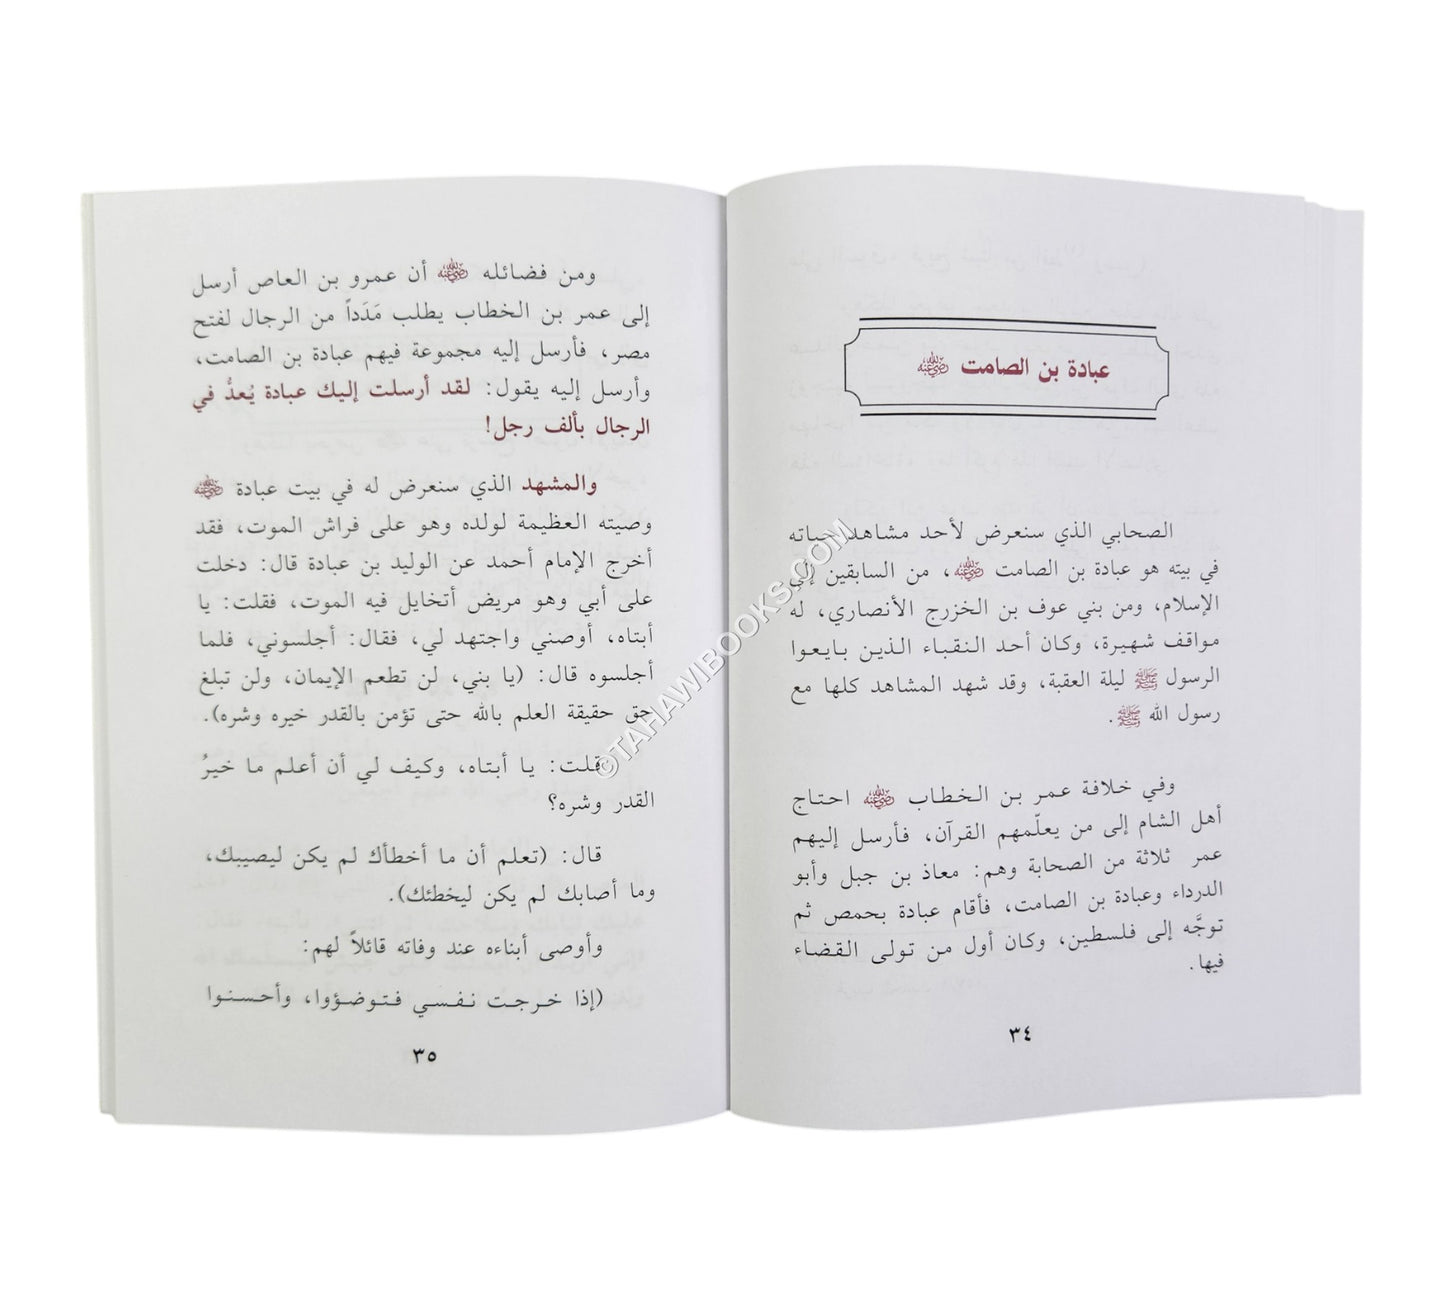 عبادة بن الصامت رضي الله عنه
الصحابي الذي سنعرض لأحد مشاهد حياته
في بيته هو عبادة بن الصامت رضي الله عنه، من السابقين إلى
الإسلام، ومن بني عوف بن الخزرج الأنصاري، له
مواقف شهيرة، وكان أحد النقباء الذين بايعوا
الرسول ﷺ ليلة العقبة، وقد شهد المشاهد كلها مع
رسول الله ﷺ.
وفي خلافة عمر بن الخطاب رضي الله عنه احتاج
أهل الشام إلى من يعلّمهم القرآن، فأرسل إليهم
عمر ثلاثة من الصحابة وهم: معاذ بن جبل وأبو
الدرداء وعبادة بن الصامت، فأقام عبادة بحمص ثم
توجَّه إلى فلسطين، وكان أول من تولى القضاء
فيها.
٣٤
ومن فضائله رضي الله عنه أن عمرو بن العاص أرسل
إلى عمر بن الخطاب يطلب مَدَداً من الرجال لفتح
مصر، فأرسل إليه مجموعة فيهم عبادة بن الصامت،
وأرسل إليه يقول: لقد أرسلت إليك عبادة يُعدُّ في
الرجال بألف رجل!
والمشهد الذي سنعرض له في بيت عبادة رضي الله عنه
وصيته العظيمة لولده وهو على فراش الموت، فقد
أخرج الإمام أحمد عن الوليد بن عبادة قال: دخلت
على أبي وهو مريض أتخايل فيه الموت، فقلت: يا
أبتاه، أوصني واجتهد لي، فقال: أجلسوني، فلما
أجلسوه قال: (يا بني، لن تطعم الإيمان، ولن تبلغ
حق حقيقة العلم بالله حتى تؤمن بالقدر خيره وشره).
قلت: يا أبتاه، وكيف لي أن أعلم ما خيرُ
القدر وشره؟
قال: (تعلم أن ما أخطأك لم يكن ليصيبك،
وما أصابك لم يكن ليخطئك).
وأوصى أبناءه عند وفاته قائلاً لهم:
(إذا خرجت نفسي فتوضؤوا، وأحسنوا
٣٥
©TAHAWIBOOKS.COM